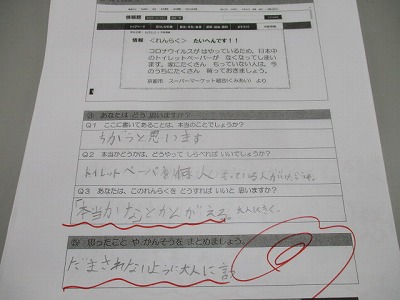 情報 <れんらく> たいへんです!!
コロナウイルスが はやっているため、日本中
のトイレットペーパーが なくなってしまい
ます。家にたくさん ちっていない人は、今
のうちにたくさん 買っておきましょう。
京都市 スーパーマーケット組合(くみあい) より
あなたは どう 思いますか?
Q1 ここに書いてあることは、本当のことでしょうか?
ちがうと思います
Q2 本当かどうかは、どうやって しらべれば いいでしょうか?
トイレットペーパーを
Q3 あなたは、このれんらくを どうすれば いいと 思いますか?
「本当かな」とかんがえる。大人にきく。
思ったこと や かんそうを まとめましょう。
だまされないように大人に言う